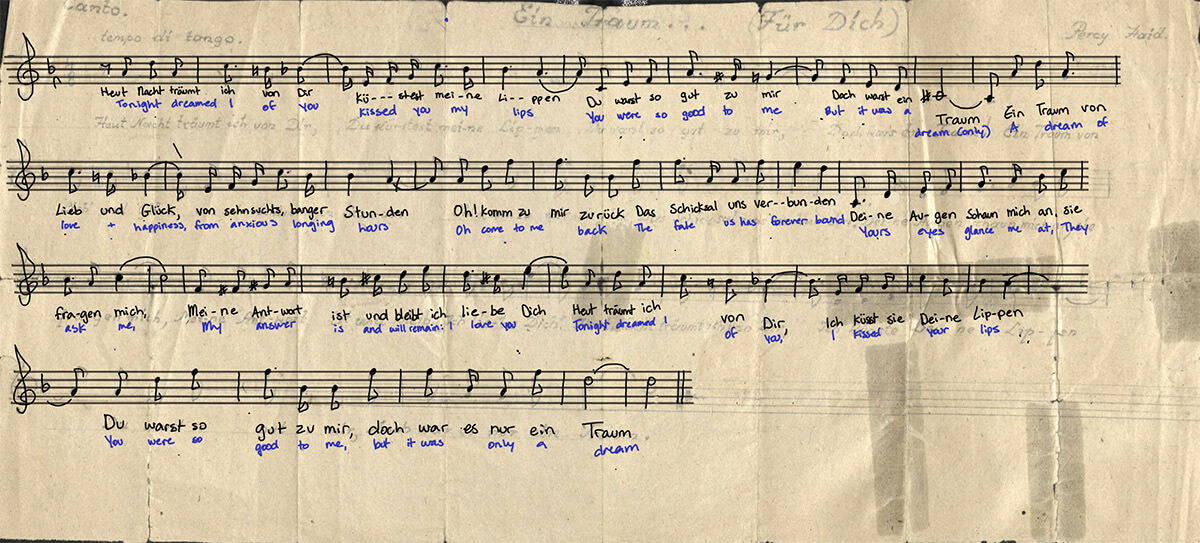 Canto.
Ein Traum... (Für Dich)
tempo di tango.
Percy Haid.
Heut Nacht träumt ich von Dir Kü---sstest mei-ne Li--ppen Du warst so gut zu mir Doch warst ein Traum Ein Traum von
Tonight dreamed I of you kissed you my lips You were so good to me But it was a dream (only) A dream of
Heut Nacht träumt ich von Dir Du küsstest mei-ne Lip-pen Du warst so gut zu mir, Doch Ein Traum von
Lieb und Glück, von sehnsuchts, banger Stun-den Oh! komm zu mir zurück Das Schicksal uns ver--bun-den Dei-ne Au-gen Schaun mich an, sie
love + happiness, from anxious longing hours Oh come to me back The fate us has forever bound Yours eyes glance me at, They
fra-gen mich, Mei-ne Ant-wort ist und bleibt ich lie-be Dich Heut träumt ich von Dir, Ich küsst sie Dei-ne Lip-pen
ask me, My answer is and will remain: I love you Tonight dreamed I of you, I kissed your lips
Lip-pen
Du warst so gut zu mir, doch war es nur ein Traum
You were so good to me, but it was only a dream